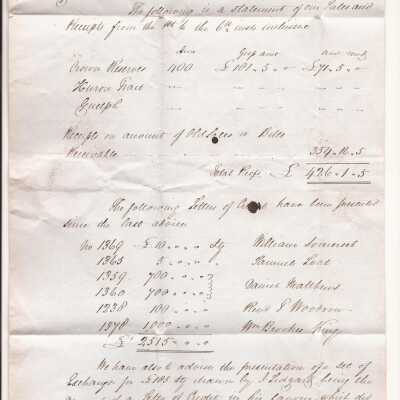 The following is a statement of our Sales and
Receipts from the 1st to the 6th inst inclusive
Acres Gross amt amt recd
Crown Reserves 400 £101-5-0 £71-5-0
Huron Tract
Guelph
Receipts on amount of Old Sales or Bills
Receivable 354-16-5
Total Recps £ 426-1-5
The following Letters of Credit have been presented
since the last advice
No 1369 £10-0-0 Sg William
1365 5-0-0 Samuel
1359 700-0-0
1360 700-0-0 Daniel Matthews
1238 100-0-0 Revd J Woodrow
1378 1000-0-0 Wm Brookes King
£2515-0-0
We have also to advise the presentation of a set of
Exchange for £ sg drawn by J being the
amount of a Letter of Credit in his favour which